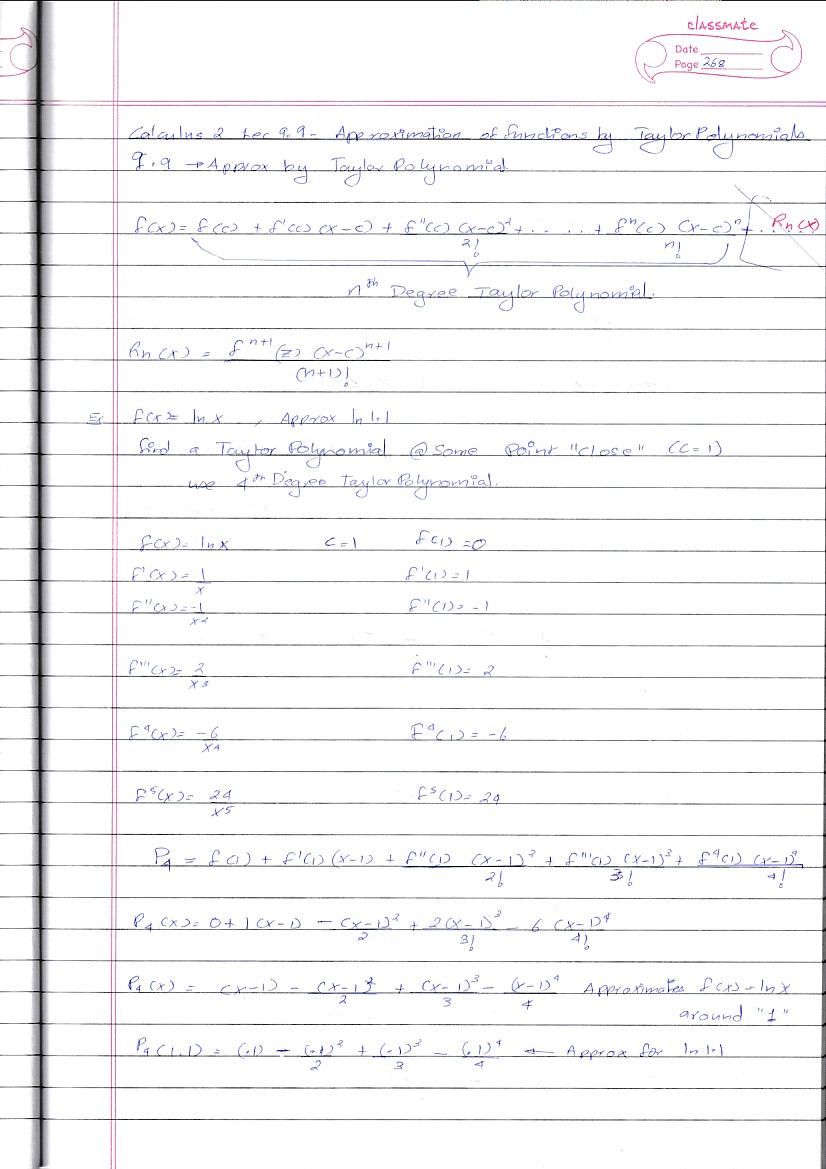 classmate
Date
Page 268
Calculus 2 Lec 9.9 - Approximation of functions by Taylor Polynomials
9.9 → Approx by Taylor Polynomial
f(x) = f(c) + f'(c) (x-c) + f''(c) (x-c)²/2! + . . . . . + fⁿ(c) (x-c)ⁿ/n! + . . Rn(x)
nth Degree Taylor Polynomial.
Rn(x) = fⁿ⁺¹(z) (x-c)ⁿ⁺¹/(n+1)!
f(x) = ln x , Approx ln 1.1
find a Taylor Polynomial @ Some Point "close" (c=1)
use 4th Degree Taylor Polynomial.
f(x) = ln x c=1 f(1) = 0
f'(x) = 1/x f'(1) = 1
f''(x) = -1/x² f''(1) = -1
f'''(x) = 2/x³ f'''(1) = 2
f⁴(x) = -6/x⁴ f⁴(1) = -6
f⁵(x) = 24/x⁵ f⁵(1) = 24
P₄ = f(1) + f'(1) (x-1) + f''(1) (x-1)²/2! + f'''(1) (x-1)³/3! + f⁴(1) (x-1)⁴/4!
P₄(x) = 0 + 1(x-1) - (x-1)²/2 + 2(x-1)³/3! - 6 (x-1)⁴/4!
P₄(x) = (x-1) - (x-1)²/2 + (x-1)³/3 - (x-1)⁴/4 Approximates f(x) = ln x
around "1"
P₄(1.1) = (.1) - (.1)²/2 + (.1)³/3 - (.1)⁴/4 ← Approx for ln 1.1